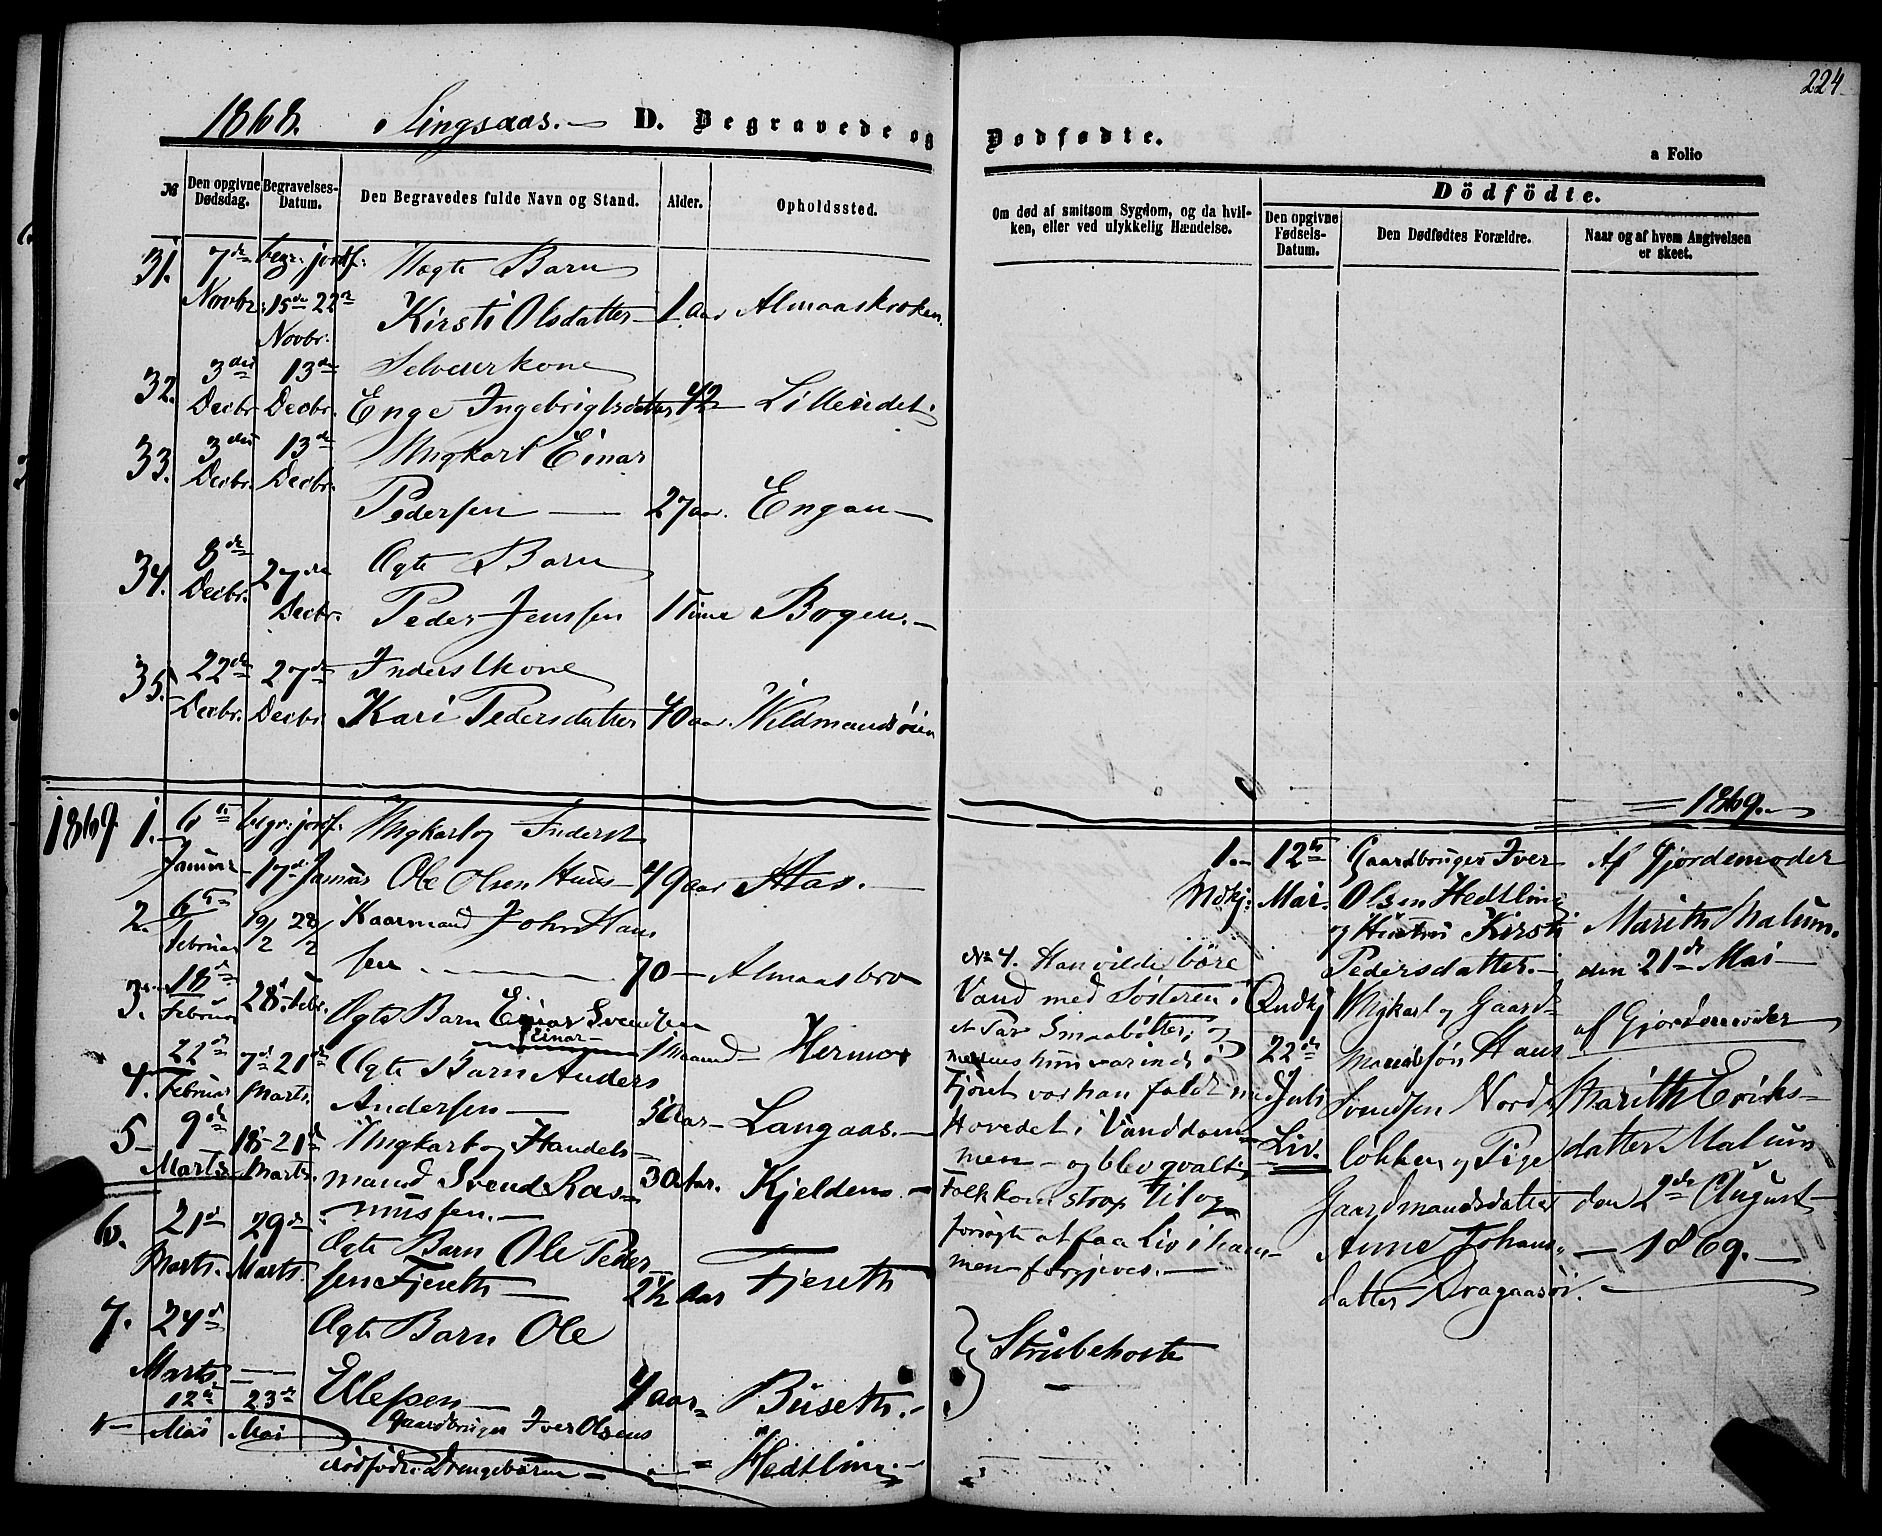 224
1868. Singsaas. — D. Begravede og Dødfødte.
a Folio
№
Den opgivne Dødsdag.
Begravelses-Datum.
Den Begravedes fulde Navn og Stand.
Alder.
Opholdssted.
Om død af smitsom Sygdom, og da hvil-
ken, eller ved ulykkelig Hændelse.
Dödfödte.
Den opgivne Fødsels-Datum.
Den Dødfødtes Forældre.
Naar og af hvem Angivelsen er skeet.
31. 7de begr: jordf: Uægte Barn
Novbr. 15de 22de Kirsti Olsdatter — 1 aar Almaaskroken.
Novbr.
32. 3die 13de Selveierkone
Decbr. Decbr. Enge Ingebrigtsdatter 42 — Lilleeidet.
33. 3die 13de Ungkarl Einar
Decbr. Decbr.
Pedersen — 27 aar. Engan —
34. 8de 27de Ægte Barn
Decbr. Decbr. Peder Jenssen 1 Time Bogen. —
35. 22de 27de Inderstkone
Decbr. Decbr. Kari Pedersdatter 40 aar. Vildmandsøien
1869 1. 6te begr: jordf: Ungkarl og Inderst
Januar 17de Januar Ole Olsen Huus — 49 aar Aas. —
2. 6te 19/2 28/2 Kaarmand John Han
Februar sen — 70 — Almaasbro
3. 18de 28de Febr. Ægte Barn Einar Svendsen
Februar Einar 1 Maaned — Hermo
4. 22de 7de 21de Ægte Barn Anders
Februar Marts. Andersen — 5 Aar — Langaas. —
5 — 9de 18 — 21de Ungkarl og Handels-
Marts. Marts. mand Svend Ras- 30 Aar. Kjelden. —
mussen. —
6. 21de 29de Ægte Barn Ole Peder
Marts. Marts. sen Fjereth — 2½ Aar Fjereth
7. 24de Ægte Barn Ole
Marts. — Ellefsen — 4 aar — Buseth. —
12te 23de Gaardbruger Iver Olsens
Mai Mai dødfødte Drengebarn — = Hedtling. —
№ 4. Han vilde bære
Vand med Søsteren i
et Par Smaabøtter; og
medens hun var inde i
Fjøset var han faldt med
Hovedet i Vanddam-
men — og blev qvalt;
Folk kom strax til og
forsøgte at faa Liv i ham —
men forgjeves. —
Strubehoste
1869. —
1. — 12te Gaardbruger Iver
Mdkj: Mai. Olsen Hedtling
og Hustru Kirsti
Pedersdatter. —
Af Gjordemoder
Marith Malum.
den 21de Mai —
Qvdkj Ungkarl og Gaard-
22de mandssøn Hans
Juli Svendsen Nord-
Liv. løkken og Pige
Gaardmandsdatter
Anne Johans-
datter Dragaasøi.
af Gjordemoder
Marith Eriks-
datter Malum
den 2de August —
— 1869. —